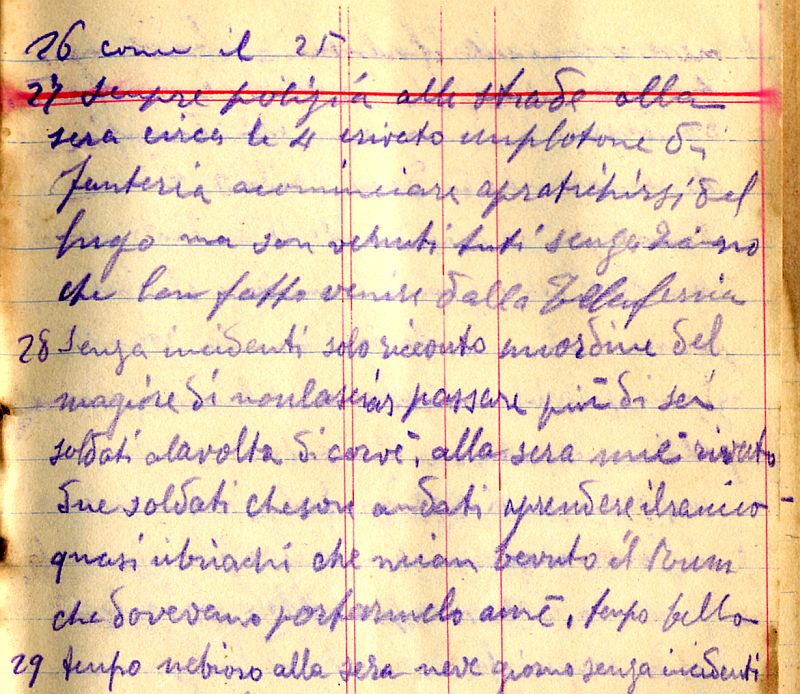 26 come il 25
27 sempre polizia alle strade alla
sera circa le 4 erivato unplotone di
fanteria acominciare apratichirsi del
lugo ma son venuti tuti senza
che lan fatto venire dalla
28 Senza incidenti solo riceuto unordine del
magiore di nonlasciar passare più di sei
soldati alavolta di corvè, alla sera mie rivato
due soldati cheson andati aprendere ilrancio
quasi ubriachi che mian bevuto il Rum
che dovevano portarmelo amè, tempo bello
29 tempo nebioso alla sera neve giorno senza incidenti